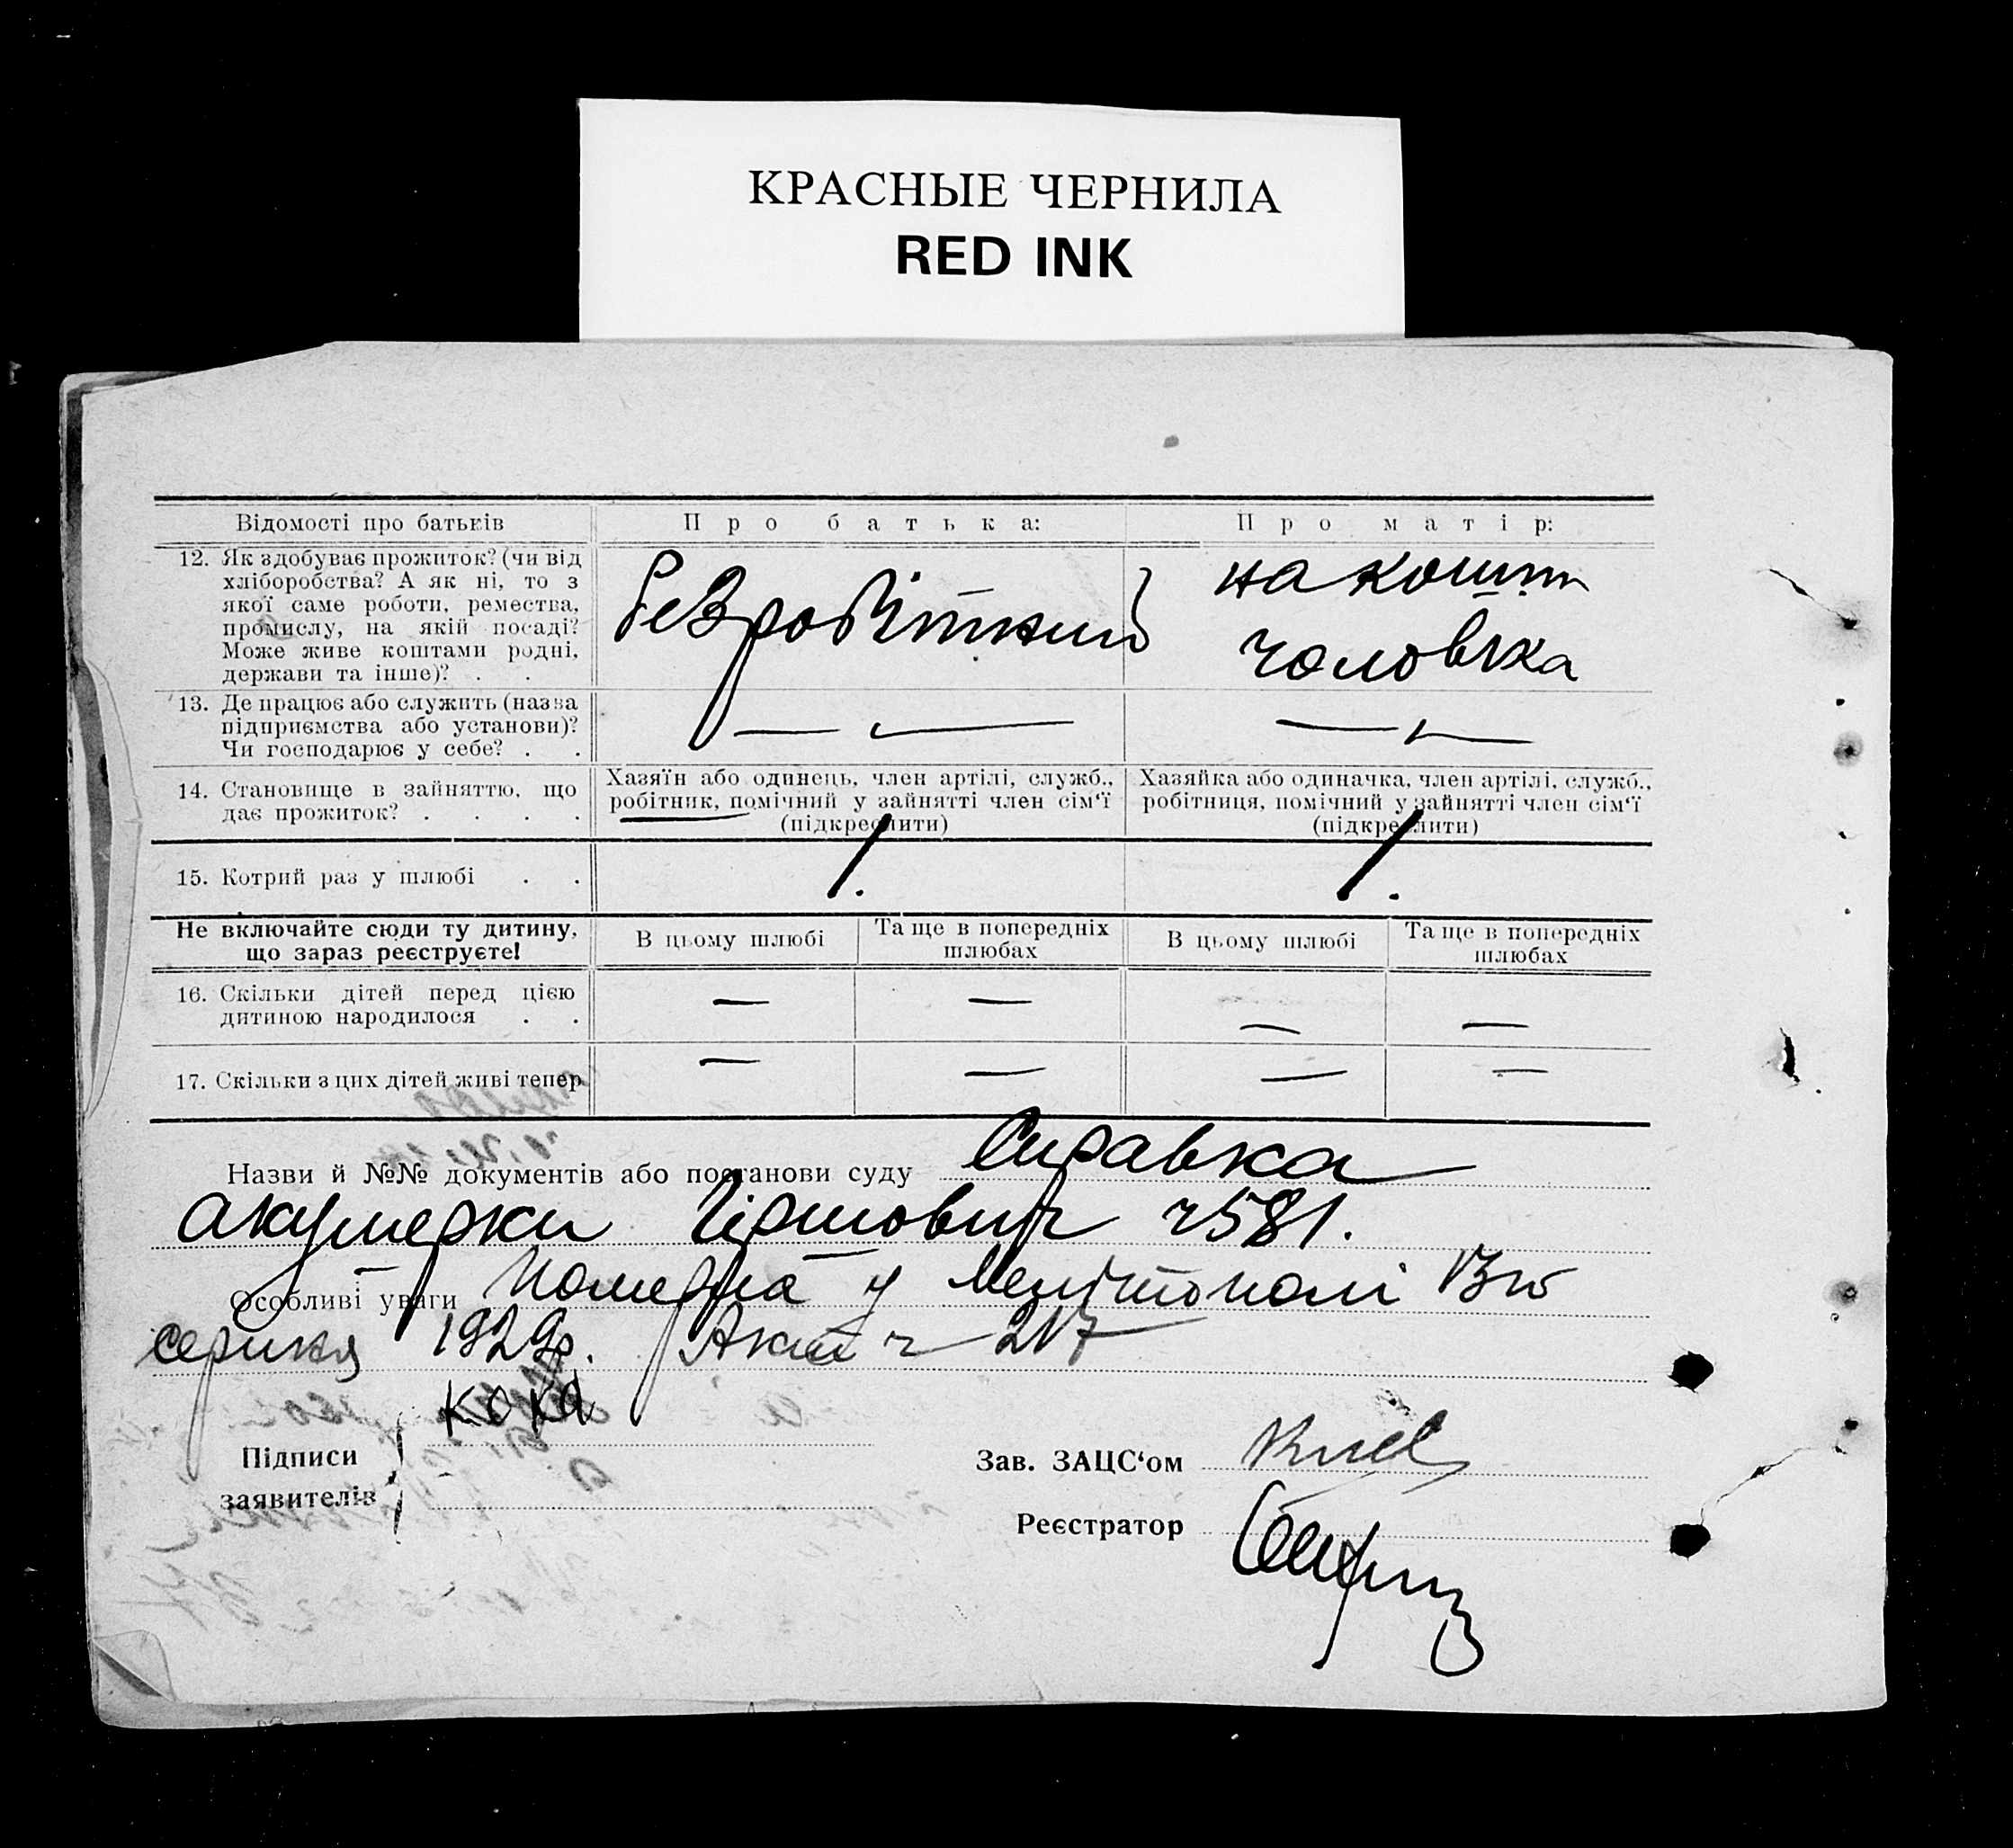 КРАСНЫЕ ЧЕРНИЛА
RED INK
Відомості про батьків
Про батька:
Про матір:
12. Як здобуває прожиток? (чи від
хліборобства? А як ні, то з
якої саме роботи, ремества,
промислу, на якій посаді?
Може живе коштами родні,
держави та інше)? . .
Безробітний
на кошти
чоловіка
13. Де працює або служить (назва
підприємства або установи)?
Чи господарює у себе? . .
— —
— —
14. Становище в зайняттю, що
дає прожиток? . . . .
Хазяїн або одинець, член артілі, служб.,
робітник, помічний у зайнятті член сім‘ї
(підкреслити)
Хазяйка або одиначка, член артілі, служб.,
робітниця, помічний у зайнятті член сім‘ї
(підкреслити)
15. Котрий раз у шлюбі . .
1.
1.
Не включайте сюди ту дитину,
що зараз реєструєте!
В цьому шлюбі
Та ще в попередніх
шлюбах
В цьому шлюбі
Та ще в попередніх
шлюбах
16. Скільки дітей перед цією
дитиною народилося . .
— — — —
17. Скільки з цих дітей живі тепер
— — — —
Назви й №№ документів або постанови суду Справка
акушерки ч 581.
Особливі уваги Померла у Мелітополі 13го
серпня 1929р. Акт ч 217
Підписи
заявителів
Зав. ЗАЦС‘ом
Реєстратор